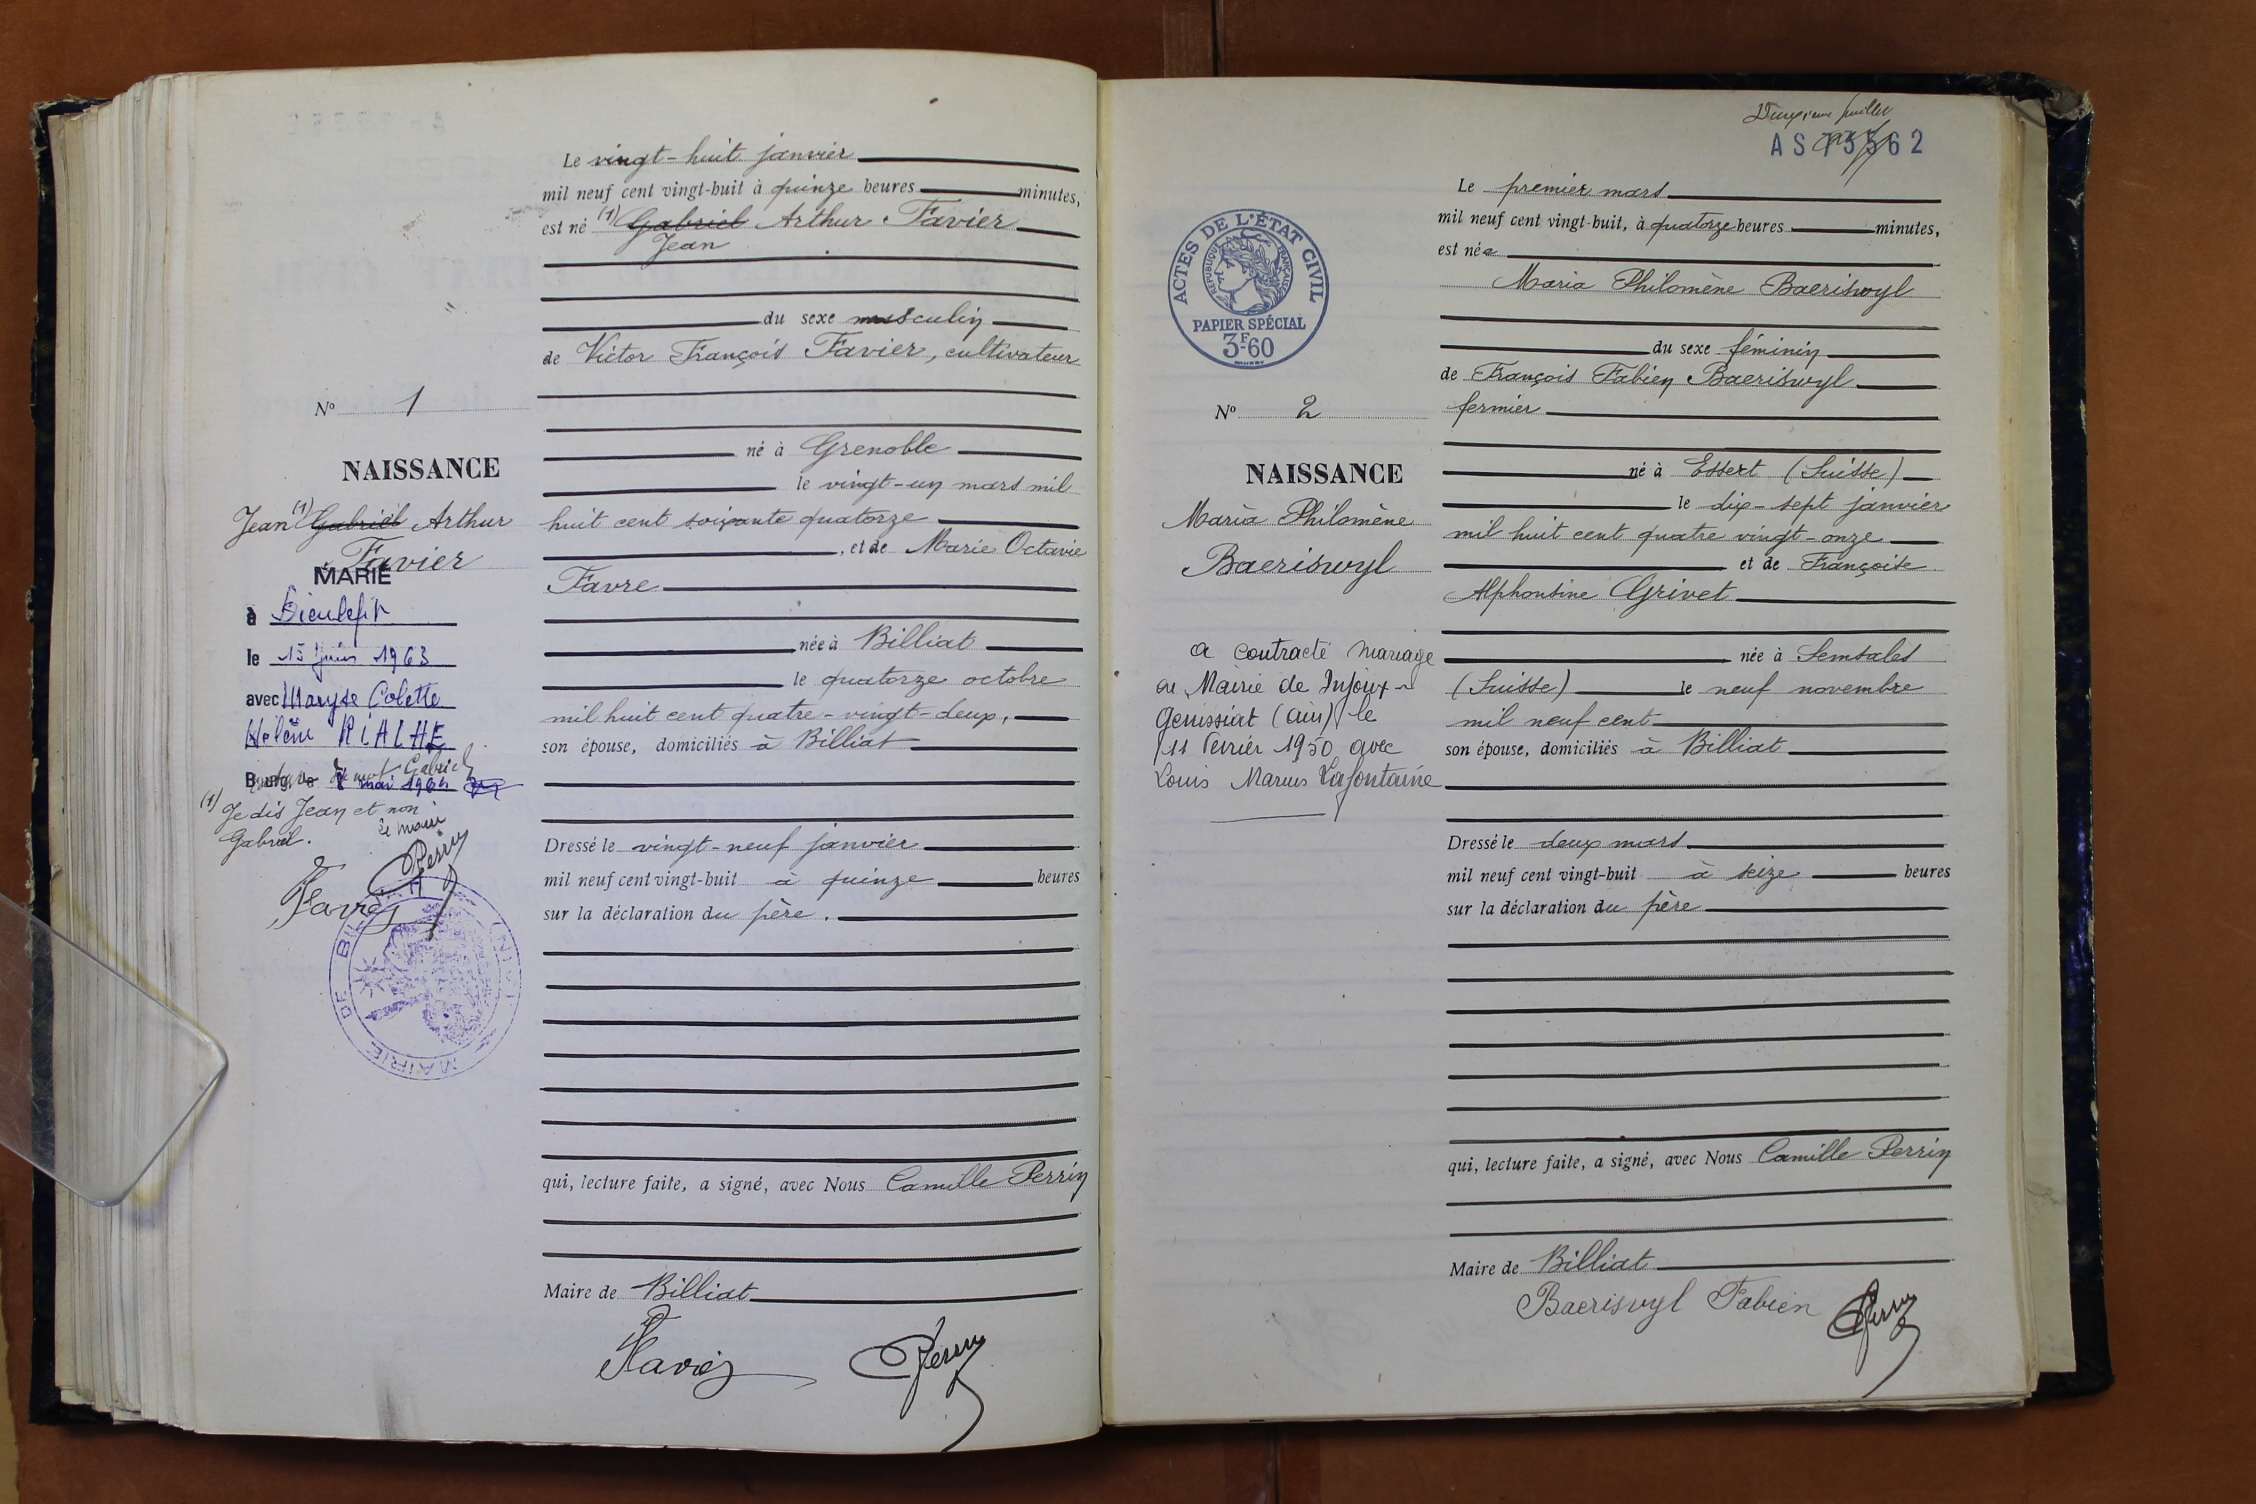 Le vingt-huit janvier
mil neuf cent vingt-huit à quinze heures minutes,
est né (1) Gabriel Arthur Favier
Jean
du sexe masculin
de Victor François Favier, cultivateur
né à Grenoble
le vingt-un mars mil
huit cent soixante quatorze
, et de Marie Octavie
Favre
née à Billiat
le quatorze octobre
mil huit cent quatre-vingt-deux,
son épouse, domiciliés à Billiat
Dressé le vingt-neuf janvier
mil neuf cent vingt-huit à quinze heures
sur la déclaration du père.
qui, lecture faite, a signé, avec Nous Camille Perrin
Maire de Billiat
Favier Perrin
No 1
NAISSANCE
Jean (1) Gabriel Arthur
Favier
MARIÉ
à Dieulefit
le 15 juin 1963
avec Maryse Colette
Hélène RIALHE
Bourg, le mai 1964
mot Gabriel
(1) Je dis Jean et non
Gabriel.
le maire
Perrin
Favier
MAIRIE DE BILLIAT (AIN)
Deuxième feuillet
AS 73562
ACTES DE L'ÉTAT CIVIL
RÉPUBLIQUE FRANÇAISE
PAPIER SPÉCIAL
3F.60
No 2
NAISSANCE
Maria Philomène
Baeriswyl
a contracté mariage
en Mairie de Injoux-
Génissiat (Ain) le
11 Février 1950 avec
Louis Marius Lafontaine
Le premier mars
mil neuf cent vingt-huit, à quatorze heures minutes,
est née
Maria Philomène Baeriswyl
du sexe féminin
de François Fabien Baeriswyl
fermier
né à Essert (Suisse)
le dix-sept janvier
mil huit cent quatre vingt-onze
et de Françoise
Alphonsine Grivet
née à Semsales
(Suisse) le neuf novembre
mil neuf cent
son épouse, domiciliés à Billiat
Dressé le deux mars
mil neuf cent vingt-huit à seize heures
sur la déclaration du père
qui, lecture faite, a signé, avec Nous Camille Perrin
Maire de Billiat
Baeriswyl Fabien Perrin